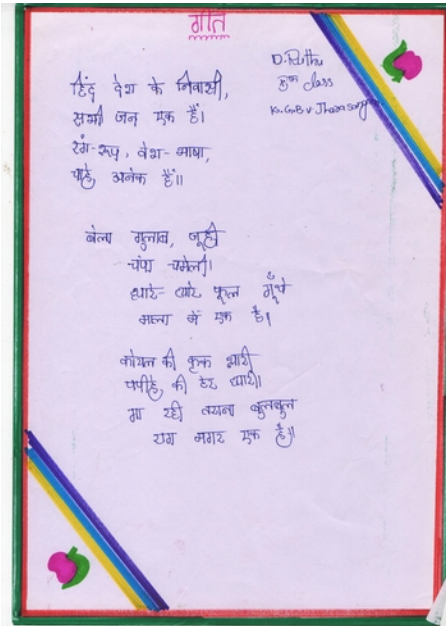 गीत
D. Ruthu
8th class
K.G.B.V Jharasangam
हिंद देश के निवासी,
सभी जन एक हैं।
रंग-रूप, वेश-भाषा,
चाहे अनेक हैं॥
बेला गुलाब, जूही
चंपा चमेली।
प्यारे-प्यारे फूल गूँथे
माला में एक है।
कोयल की कूक प्यारी
पपीहे की टेर प्यारी।
गा रही तराना बुलबुल
राग मगर एक है॥